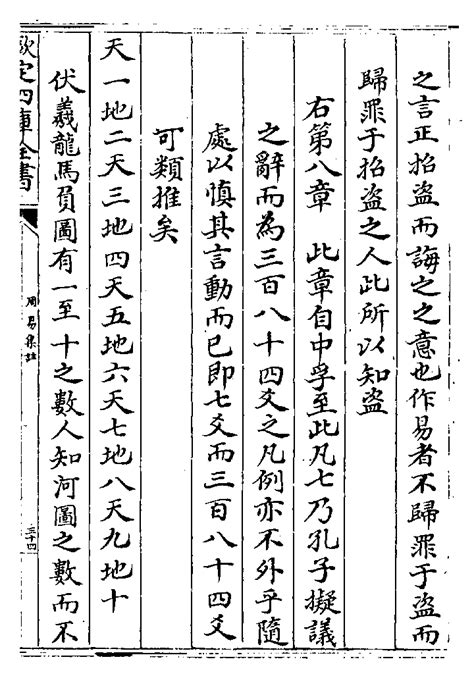 之言正招盗而誨之之意也作易者不歸罪于盗而
歸罪于招盗之人此所以知盗
右第八章　此章自中孚至此凡七乃孔子擬議
之辭而為三百八十四爻之凡例亦不外乎隨
處以慎其言動而已即七爻而三百八十四爻
可類推矣
天一地二天三地四天五地六天七地八天九地十
伏羲龍馬負圖有一至十之數人知河圖之數而不
欽定四庫全書
周易集註
三十四